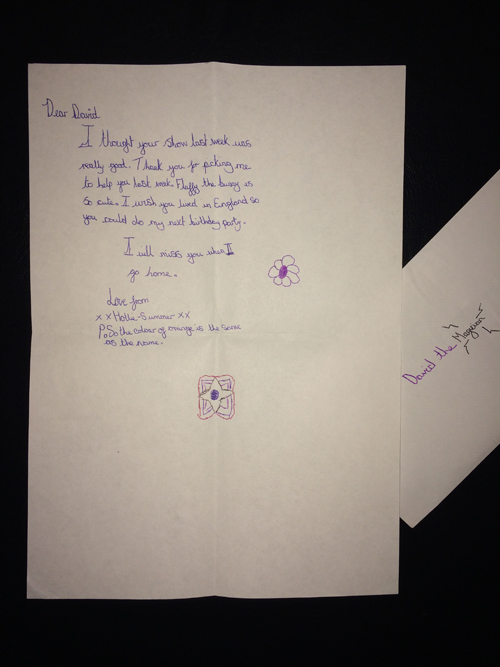 Dear David
I thought your show last week was
really good. Thank you for picking me
to help you last week. Fluffy the bunny is
so cute. I wish you lived in England so
you could do my next birthday party.
I will miss you when I
go home.
Love from
x x Hollie-Summer x x
P.S the colour of orange is the same
as the name.
David the Magician